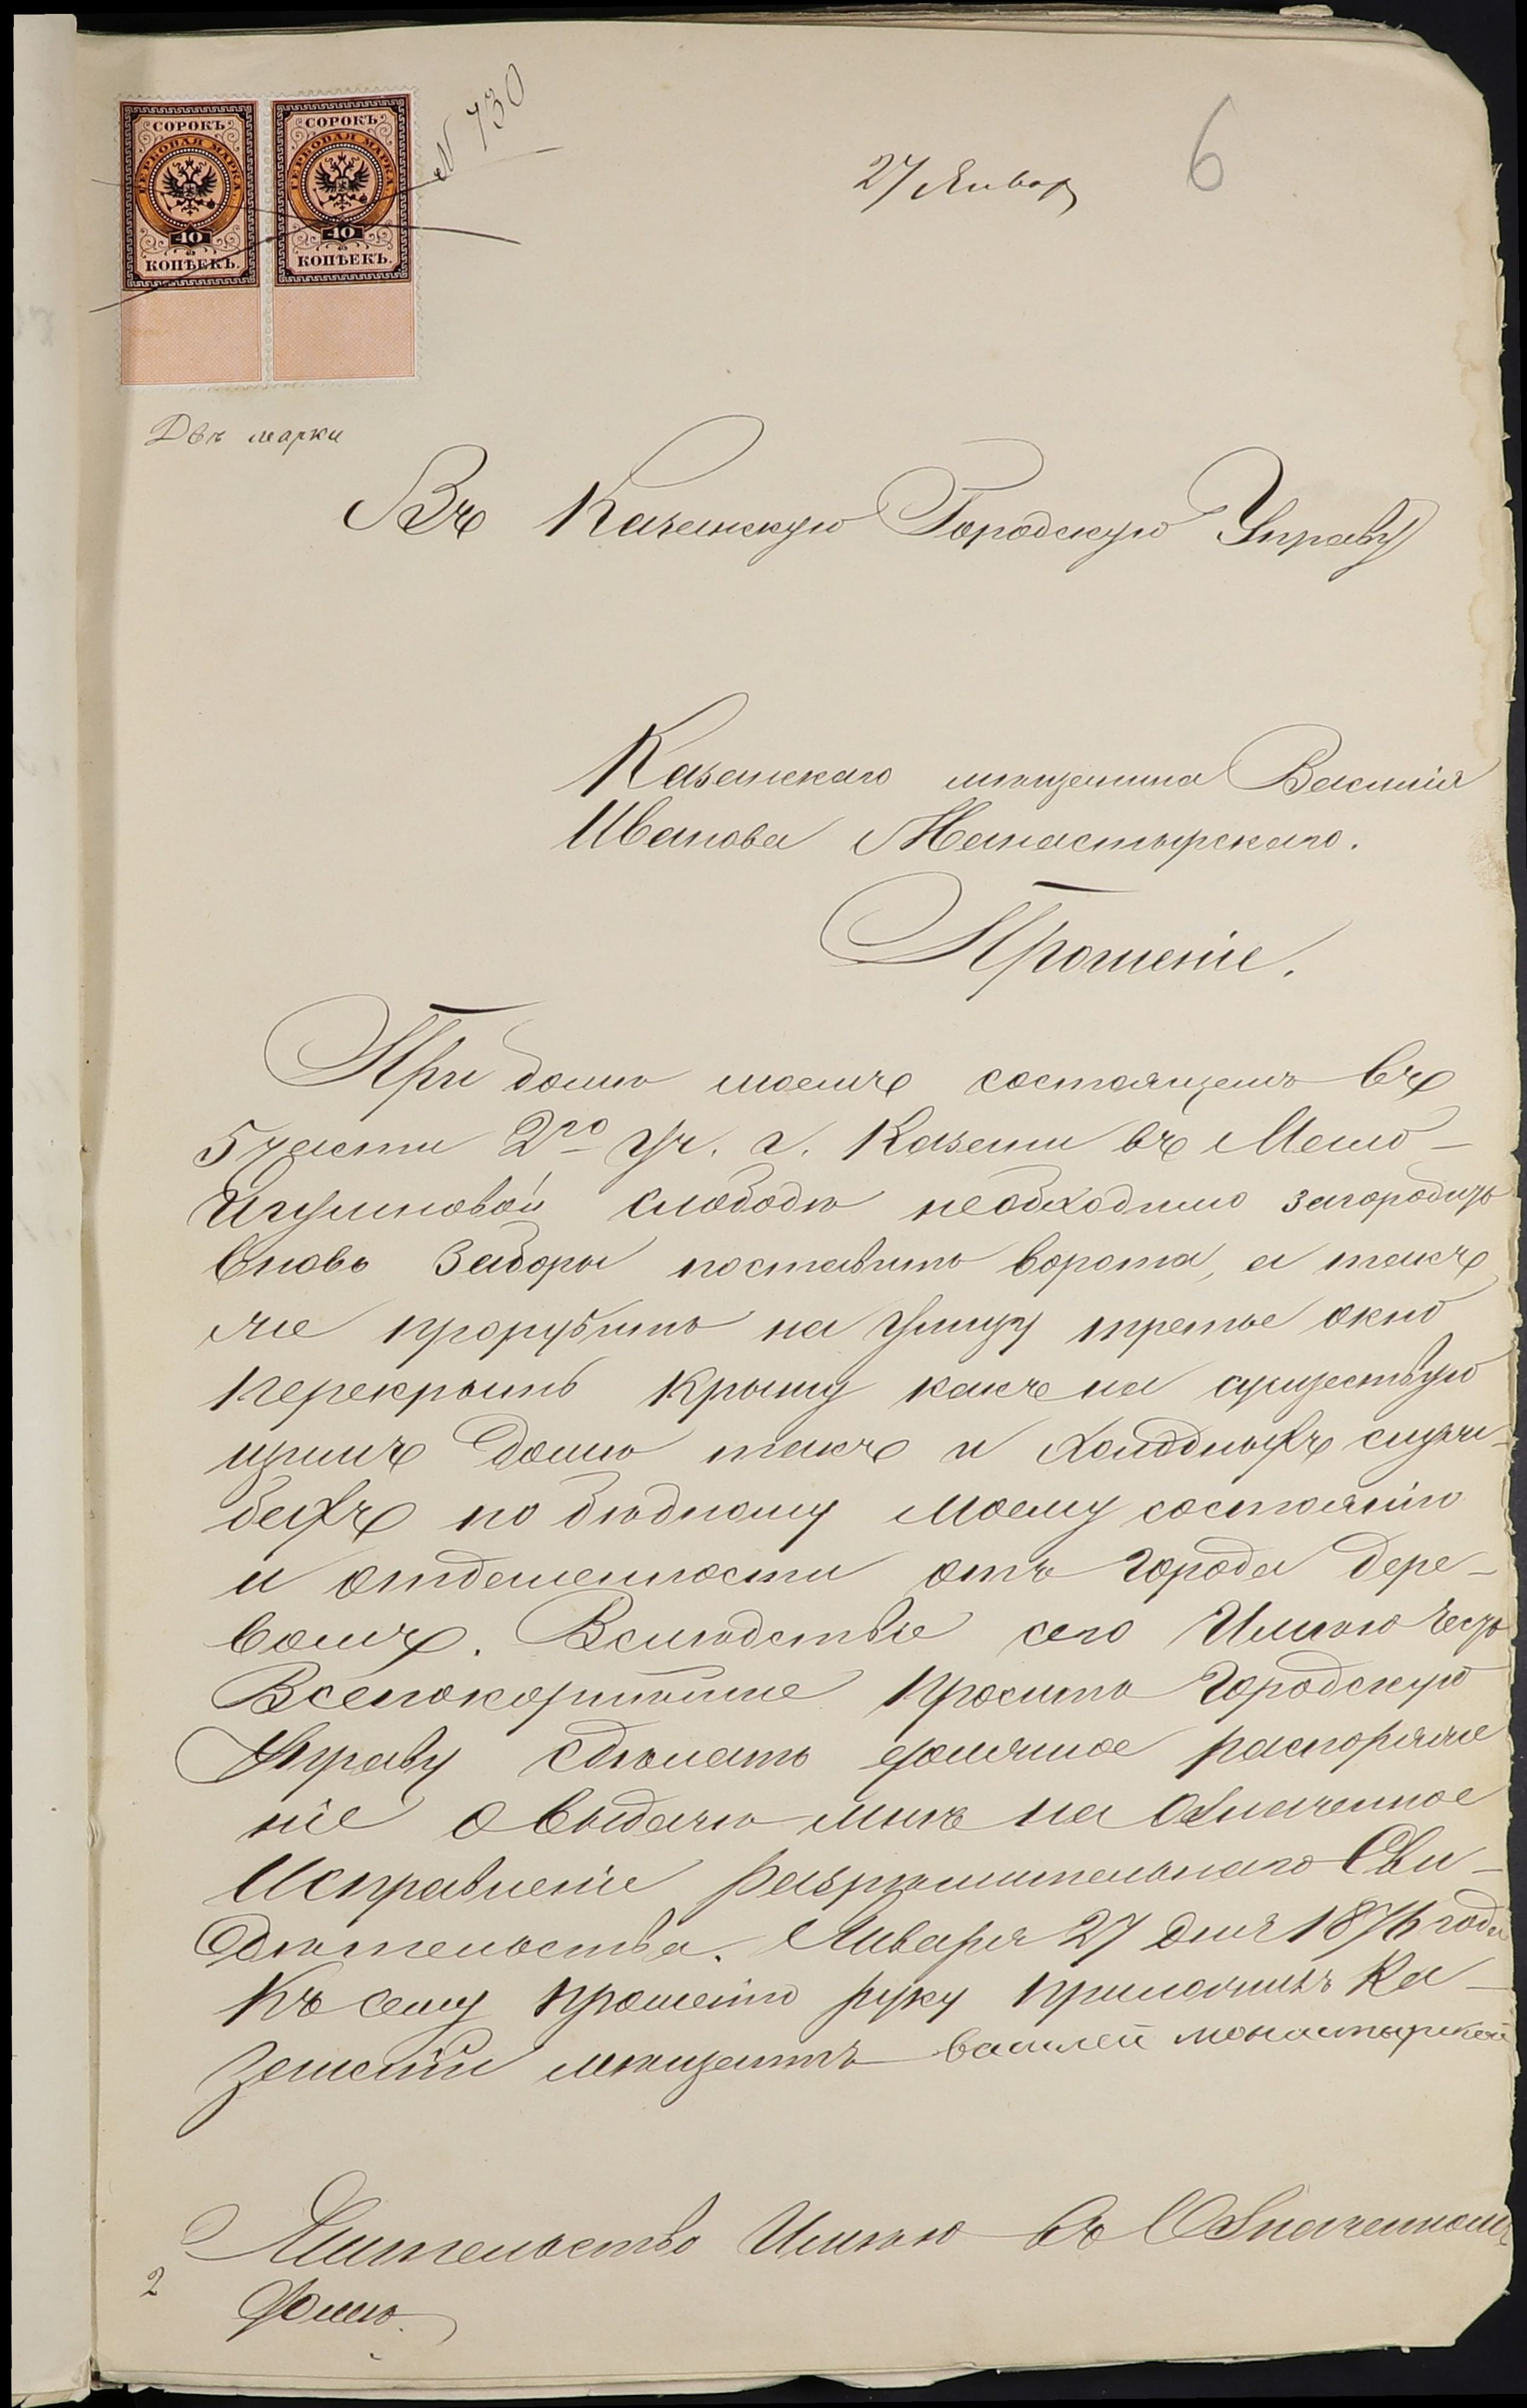 СОРОКЪ
ГЕРБОВАЯ МАРКА
40
КОПѢЕКЪ.
СОРОКЪ
ГЕРБОВАЯ МАРКА
40
КОПѢЕКЪ.
N 730
27 Январ
6
Двѣ марки
Въ Казанскую Городскую Управу
Казанскаго мѣщанина Василія
Иванова Манастырскаго.
Прошеніе.
При домѣ моемъ состоящемъ въ
5 части 2го уч. г. Казани въ Мало-
Игумновой слободѣ необходимо загородить
вновь заборы поставить ворота, а такъ
же прорубить на улицу третье окно
перекрыть крышу какъ на существую
щимъ домѣ такъ и холодныхъ служ
бахъ по бѣдному моему состоянію
и отдаленности отъ города дере-
вомъ. Вслѣдствіе сего Имѣю честь
Всепокорнѣйше просить Городскую
Управу сдѣлать должное распоряже
ніе о выдачѣ мнѣ на Означенное
Исправленіе разрѣшительнаго Сви-
дѣтельства. Января 27 дня 1876 года
Къ сему прошенію руку приложилъ Ка-
занскій мѣщанинъ василей монастырской
Жительство Имѣю въ Означенномъ
домѣ.
2